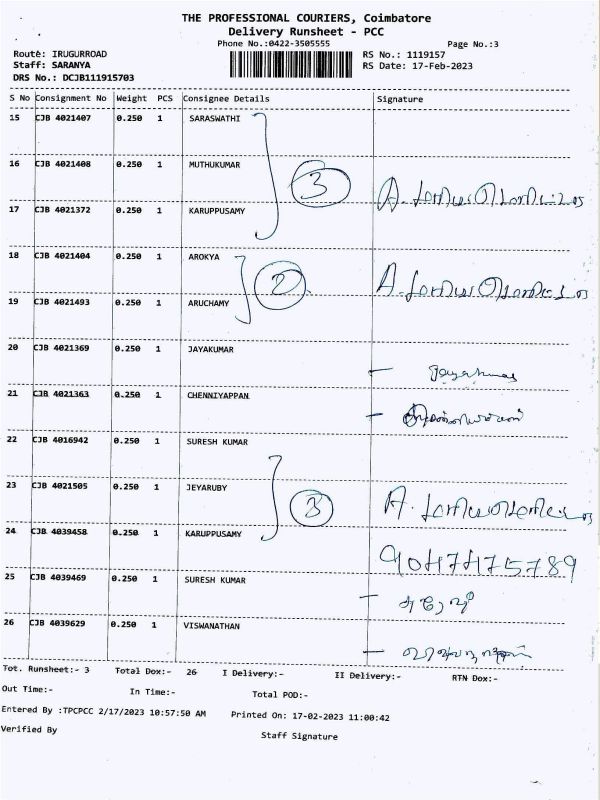 THE PROFESSIONAL COURIERS, Coimbatore
Delivery Runsheet - PCC
Phone No.:0422-3505555
Page No.:3
Route: IRUGURROAD
RS No.: 1119157
Staff: SARANYA
RS Date: 17-Feb-2023
DRS No.: DCJB111915703
S No Consignment No Weight PCS Consignee Details Signature
15 CJB 4021407 0.250 1 SARASWATHI
16 CJB 4021408 0.250 1 MUTHUKUMAR
3
17 CJB 4021372 0.250 1 KARUPPUSAMY
18 CJB 4021404 0.250 1 AROKYA
2
19 CJB 4021493 0.250 1 ARUCHAMY
20 CJB 4021369 0.250 1 JAYAKUMAR
21 CJB 4021363 0.250 1 CHENNIYAPPAN
22 CJB 4016942 0.250 1 SURESH KUMAR
23 CJB 4021505 0.250 1 JEYARUBY
3
24 CJB 4039458 0.250 1 KARUPPUSAMY
9047475789
25 CJB 4039469 0.250 1 SURESH KUMAR
26 CJB 4039629 0.250 1 VISWANATHAN
Tot. Runsheet:- 3 Total Dox:- 26 I Delivery:- II Delivery:- RTN Dox:-
Out Time:- In Time:- Total POD:-
Entered By :TPCPCC 2/17/2023 10:57:50 AM Printed On: 17-02-2023 11:00:42
Verified By Staff Signature